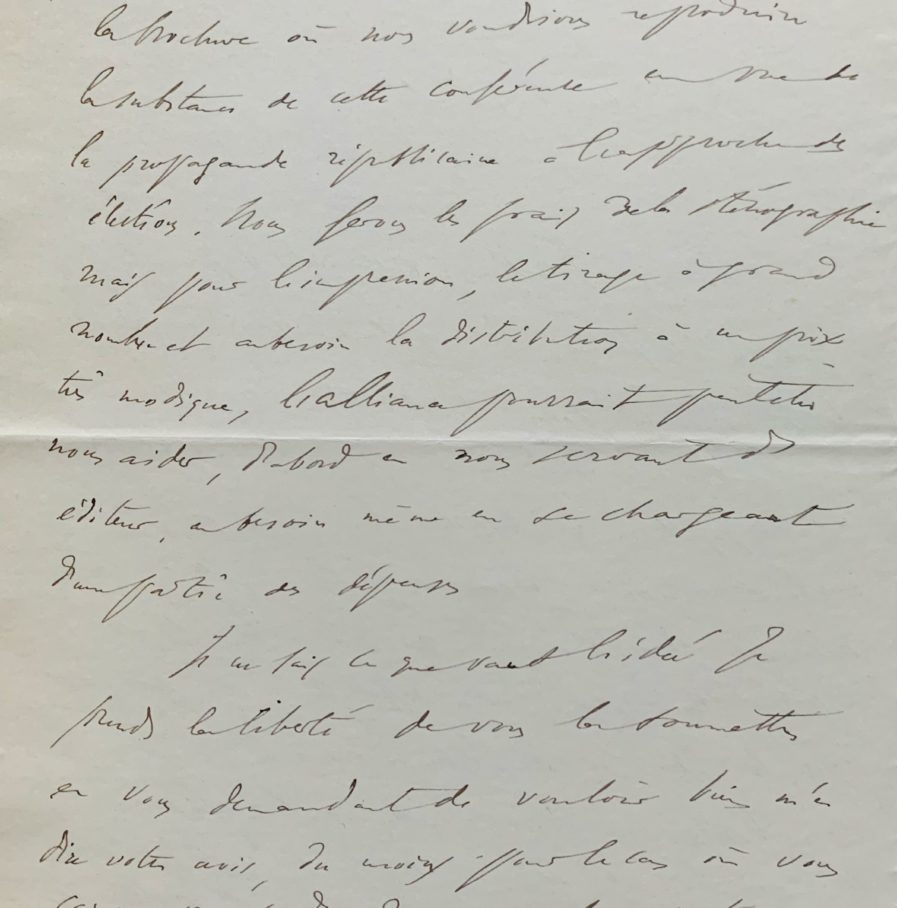 la brochure où nous voudrions reproduire
la substance de cette conférence en vue de
la propagande républicaine à l'approche des
élections. Nous ferons les frais de la sténographie
mais pour l'impression, le tirage à grand
nombre et au besoin la distribution à un prix
très modique, l'alliance pourrait peut-être
nous aider, d'abord en nous servant d'
éditeur, au besoin même en se chargeant
d'une partie des dépenses
Je ne sais ce que vaut l'idée. Je
prends la liberté de vous la soumettre
en vous demandant de vouloir bien m'en
dire votre avis, du moins pour le cas où vous